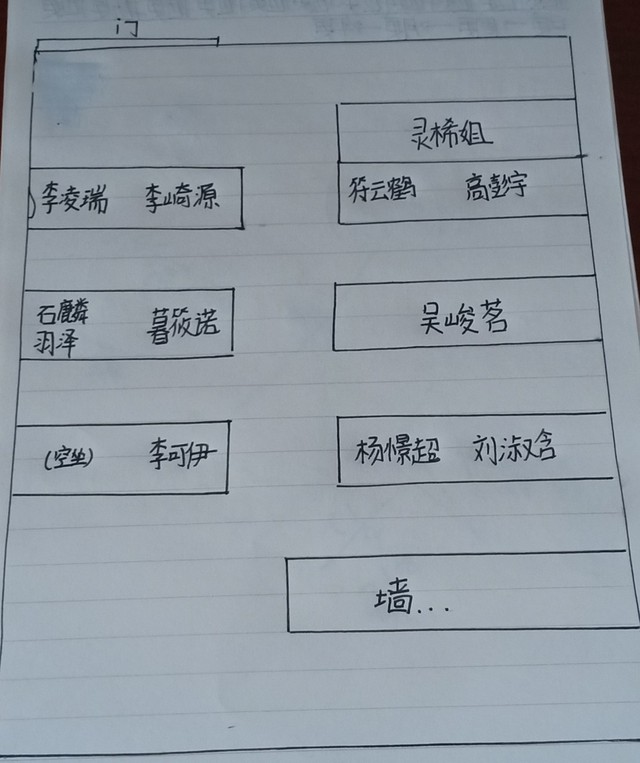 门
灵桸姐
李凌瑞 李崎源 符云鹤 高彭宇
石麟
羽泽 暮筱诺 吴峻茗
(空坐) 李可伊 杨憬超 刘淑含
墙...